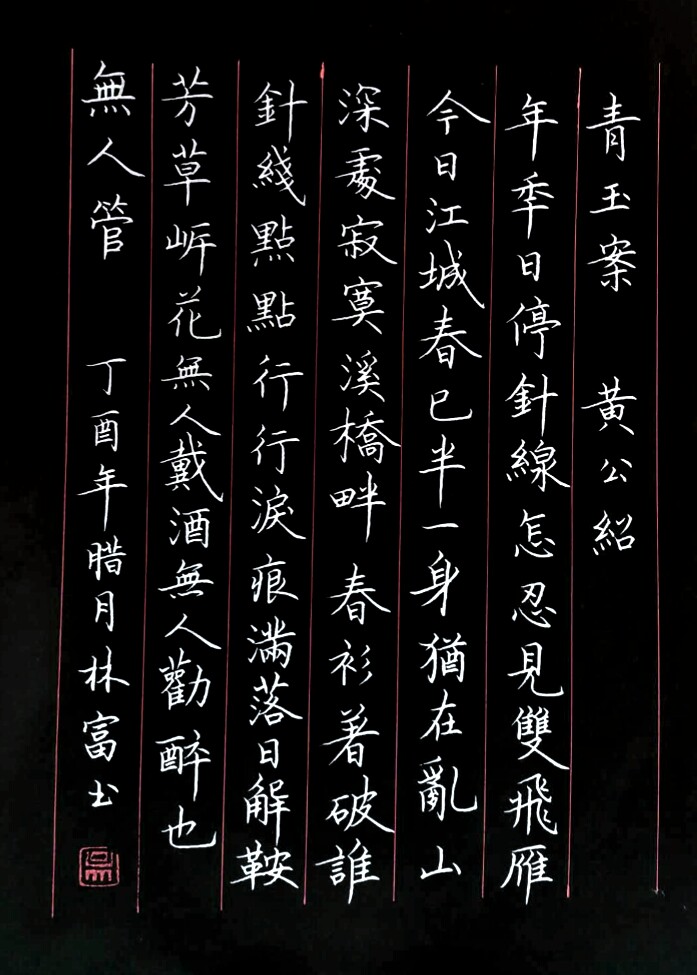 青玉案 黄公紹
年秊日停針線怎忍見雙飛雁
今日江城春已半一身猶在亂山
深處寂寞溪橋畔春衫著破誰
針綫點點行行淚痕滿落日解鞍
芳草岸花無人戴酒無人勸醉也
無人管 丁酉年腊月林富